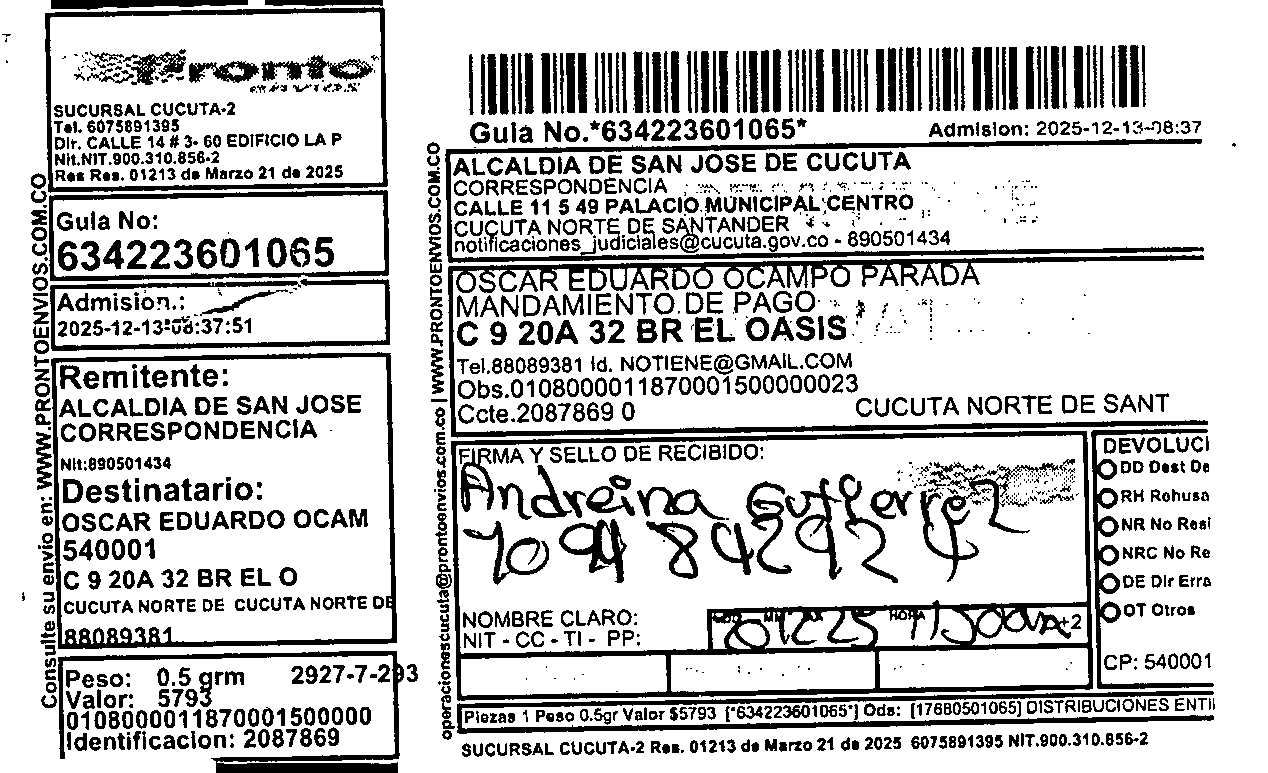 Pronto
envios
SUCURSAL CUCUTA-2
Tel. 6075891395
Dir. CALLE 14 # 3- 60 EDIFICIO LA P
Nit.NIT.900.310.856-2
Res Res. 01213 de Marzo 21 de 2025
Guia No:
634223601065
Admision.:
2025-12-13-08:37:51
Remitente:
ALCALDIA DE SAN JOSE
CORRESPONDENCIA
Nit:890501434
Destinatario:
OSCAR EDUARDO OCAM
540001
C 9 20A 32 BR EL O
CUCUTA NORTE DE CUCUTA NORTE DE
88089381
Peso: 0.5 grm 2927-7-293
Valor: 5793
0108000011870001500000
Identificacion: 2087869
Consulte su envio en: WWW.PRONTOENVIOS.COM.CO
Guia No.*634223601065* Admision: 2025-12-13-08:37
ALCALDIA DE SAN JOSE DE CUCUTA
CORRESPONDENCIA
CALLE 11 5 49 PALACIO MUNICIPAL CENTRO
CUCUTA NORTE DE SANTANDER
notificaciones_judiciales@cucuta.gov.co - 890501434
OSCAR EDUARDO OCAMPO PARADA
MANDAMIENTO DE PAGO
C 9 20A 32 BR EL OASIS
Tel.88089381 Id. NOTIENE@GMAIL.COM
Obs.0108000011870001500000023
Ccte.2087869 0 CUCUTA NORTE DE SANT
FIRMA Y SELLO DE RECIBIDO:
Andreina Gutierrez
109484292
NOMBRE CLARO:
NIT - CC - TI - PP:
HORA
+2
DEVOLUCI
DD Dest De
RH Rehusa
NR No Resi
NRC No Re
DE Dir Erra
OT Otros
CP: 540001
Piezas 1 Peso 0.5gr Valor $5793 [*634223601065*] Ods: [17680501065] DISTRIBUCIONES ENTI
SUCURSAL CUCUTA-2 Res. 01213 de Marzo 21 de 2025 6075891395 NIT.900.310.856-2
operacionescucuta@prontoenvios.com.co | WWW.PRONTOENVIOS.COM.CO